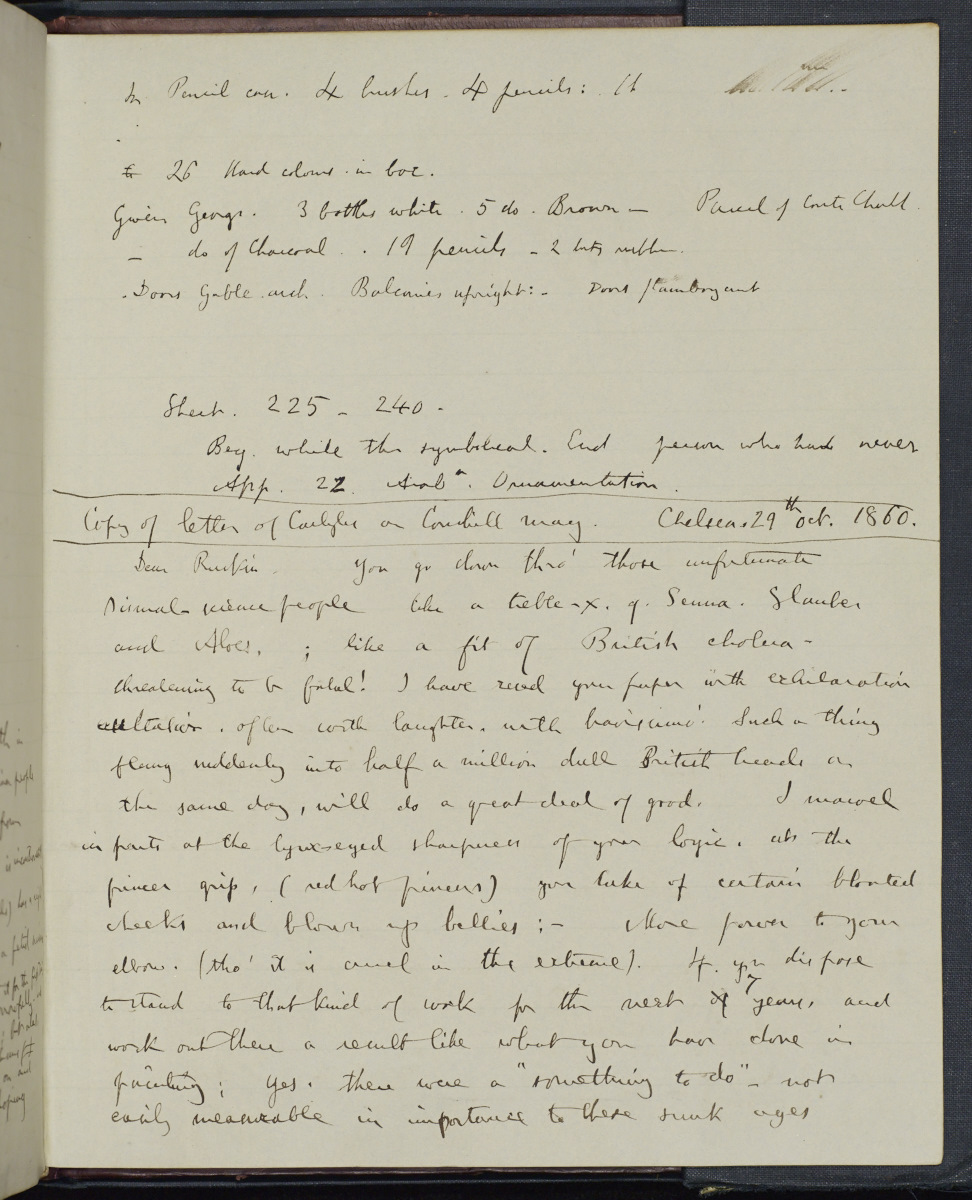 In Pencil case. 4 brushes. 4 pencils:
26 Hard colours in box.
Given George. 3 bottles white. 5 do. Brown — Parcel of Conte Chalk.
— do of Charcoal. 19 pencils — 2 bits rubber.
Doors Gable arch. Balconies upright: — Doors flamboyant
Sheet. 225 — 240 -
Beg. while the symbolical. End person who had never
App. 22. Arabn. Ornamentation.
Copy of letter of Carlyle on Cornhill mag. Chelsea. 29th Oct. 1860.
Dear Ruskin. You go down thro' those unfortunate
Dismal-science people like a treble-x. of Senna. Glauber
and Aloes, ; like a fit of British cholera —
threatening to be fatal! I have read your paper with exhilaration
exultation. often with laughter. with bravissimo! Such a thing
flung suddenly into half a million dull British heads on
the same day, will do a great deal of good. I marvel
in parts at the lynxeyed sharpness of your logic, at the
pincer grip, (red hot pincers) you take of certain bloated
cheeks and blown up bellies: — More power to your
elbow. (tho' it is cruel in the extreme). If you dispose
to stand to that kind of work for the next 7 years, and
work out there a result like what you have done in
painting; yes. there were a "something to do" — not
easily measurable in importance to these sunk ages